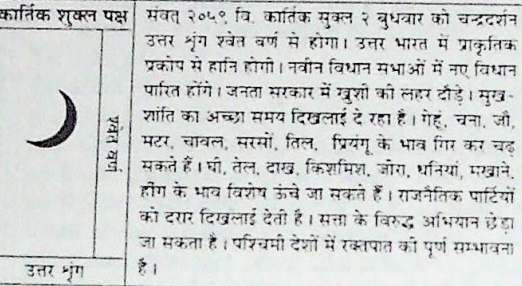 कार्तिक शुक्ल पक्ष
श्वेत वर्ण
उत्तर श्रृंग
संवत् २०५९ वि. कार्तिक सुक्ल २ बुधवार को चन्द्रदर्शन
उत्तर श्रृंग श्वेत वर्ण से होगा। उत्तर भारत में प्राकृतिक
प्रकोप से हानि होगी। नवीन विधान सभाओं में नए विधान
पारित होंगे। जनता सरकार में खुशी की लहर दौड़े। सुख-
शांति का अच्छा समय दिखलाई दे रहा है। गेहूं, चना, जौ,
मटर, चावल, सरसों, तिल, प्रियंगू के भाव गिर कर चढ़
सकते हैं। घी, तेल, दाख, किशमिश, जीरा, धनियां, मखाने,
हींग के भाव विशेष ऊंचे जा सकते हैं। राजनैतिक पार्टियों
को दरार दिखलाई देती है। सत्ता के विरुद्ध अभियान छेड़ा
जा सकता है। पश्चिमी देशों में रक्तपात की पूर्ण सम्भावना
है।